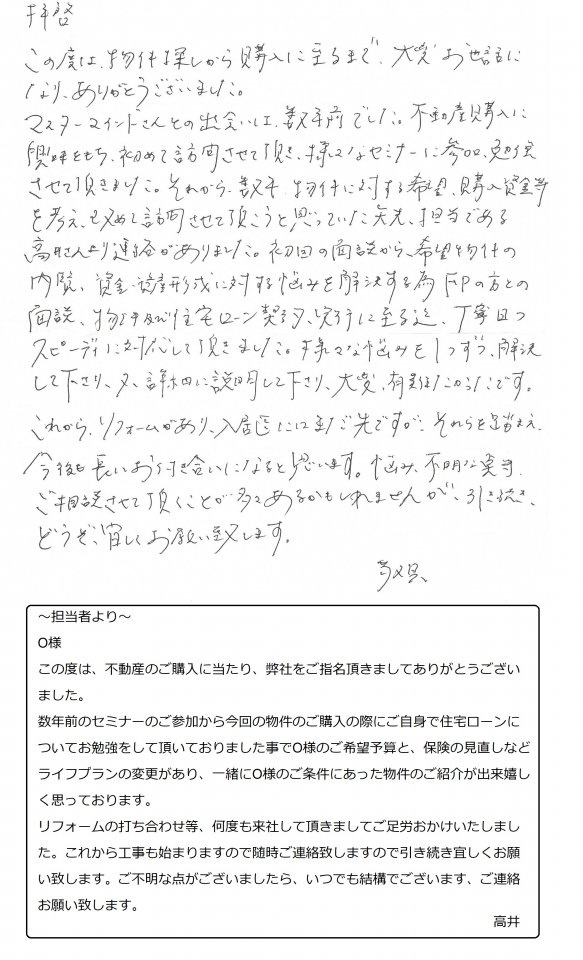 拝啓
この度は、物件探しから購入に至るまで、大変お世話に
なり、ありがとうございました。
マスターマインドさんとの出会いは、数年前でした。不動産購入に
興味をもち、初めて訪問させて頂き、様々なセミナーに参加、勉強
させて頂きました。それから、数年、物件に対する希望、購入資金等
を考え、改めて訪問させて頂こうと思っていた矢先、担当である
高井さんより連絡がありました。初回の面談から、希望物件の
内覧、資金・資産形成に対する悩みを解決する為FPの方との
面談、物件及び住宅ローン契約、実行に至る迄、丁寧且つ
スピーディに対応して頂きました。様々な悩みを1つずつ、解決
して下さり、又、詳細に説明して下さり、大変、有難たかったです。
これから、リフォームがあり、入居にはまだ先ですが、それらを踏まえ、
今後も長いお付き合いになると思います。悩み、不明な点等、
ご相談させて頂くことが多々あるかもしれませんが、引き続き、
どうぞ、宜しくお願い致します。
敬具
～担当者より～
O様
この度は、不動産のご購入に当たり、弊社をご指名頂きましてありがとうござい
ました。
数年前のセミナーのご参加から今回の物件のご購入の際にご自身で住宅ローンに
ついてお勉強をして頂いておりました事でO様のご希望予算と、保険の見直しなど
ライフプランの変更があり、一緒にO様のご条件にあった物件のご紹介が出来嬉し
く思っております。
リフォームの打ち合わせ等、何度も来社して頂きましてご足労おかけいたしまし
た。これから工事も始まりますので随時ご連絡致しますので引き続き宜しくお願
い致します。ご不明な点がございましたら、いつでも結構でございます、ご連絡
お願い致します。
高井